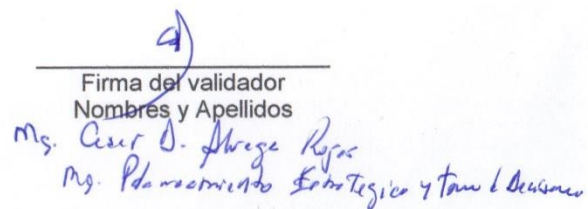 Firma del validador
Nombres y Apellidos
Mg. Cesar D. Rojas
Mg. Planeamiento Estrategico y toma d Decisiones